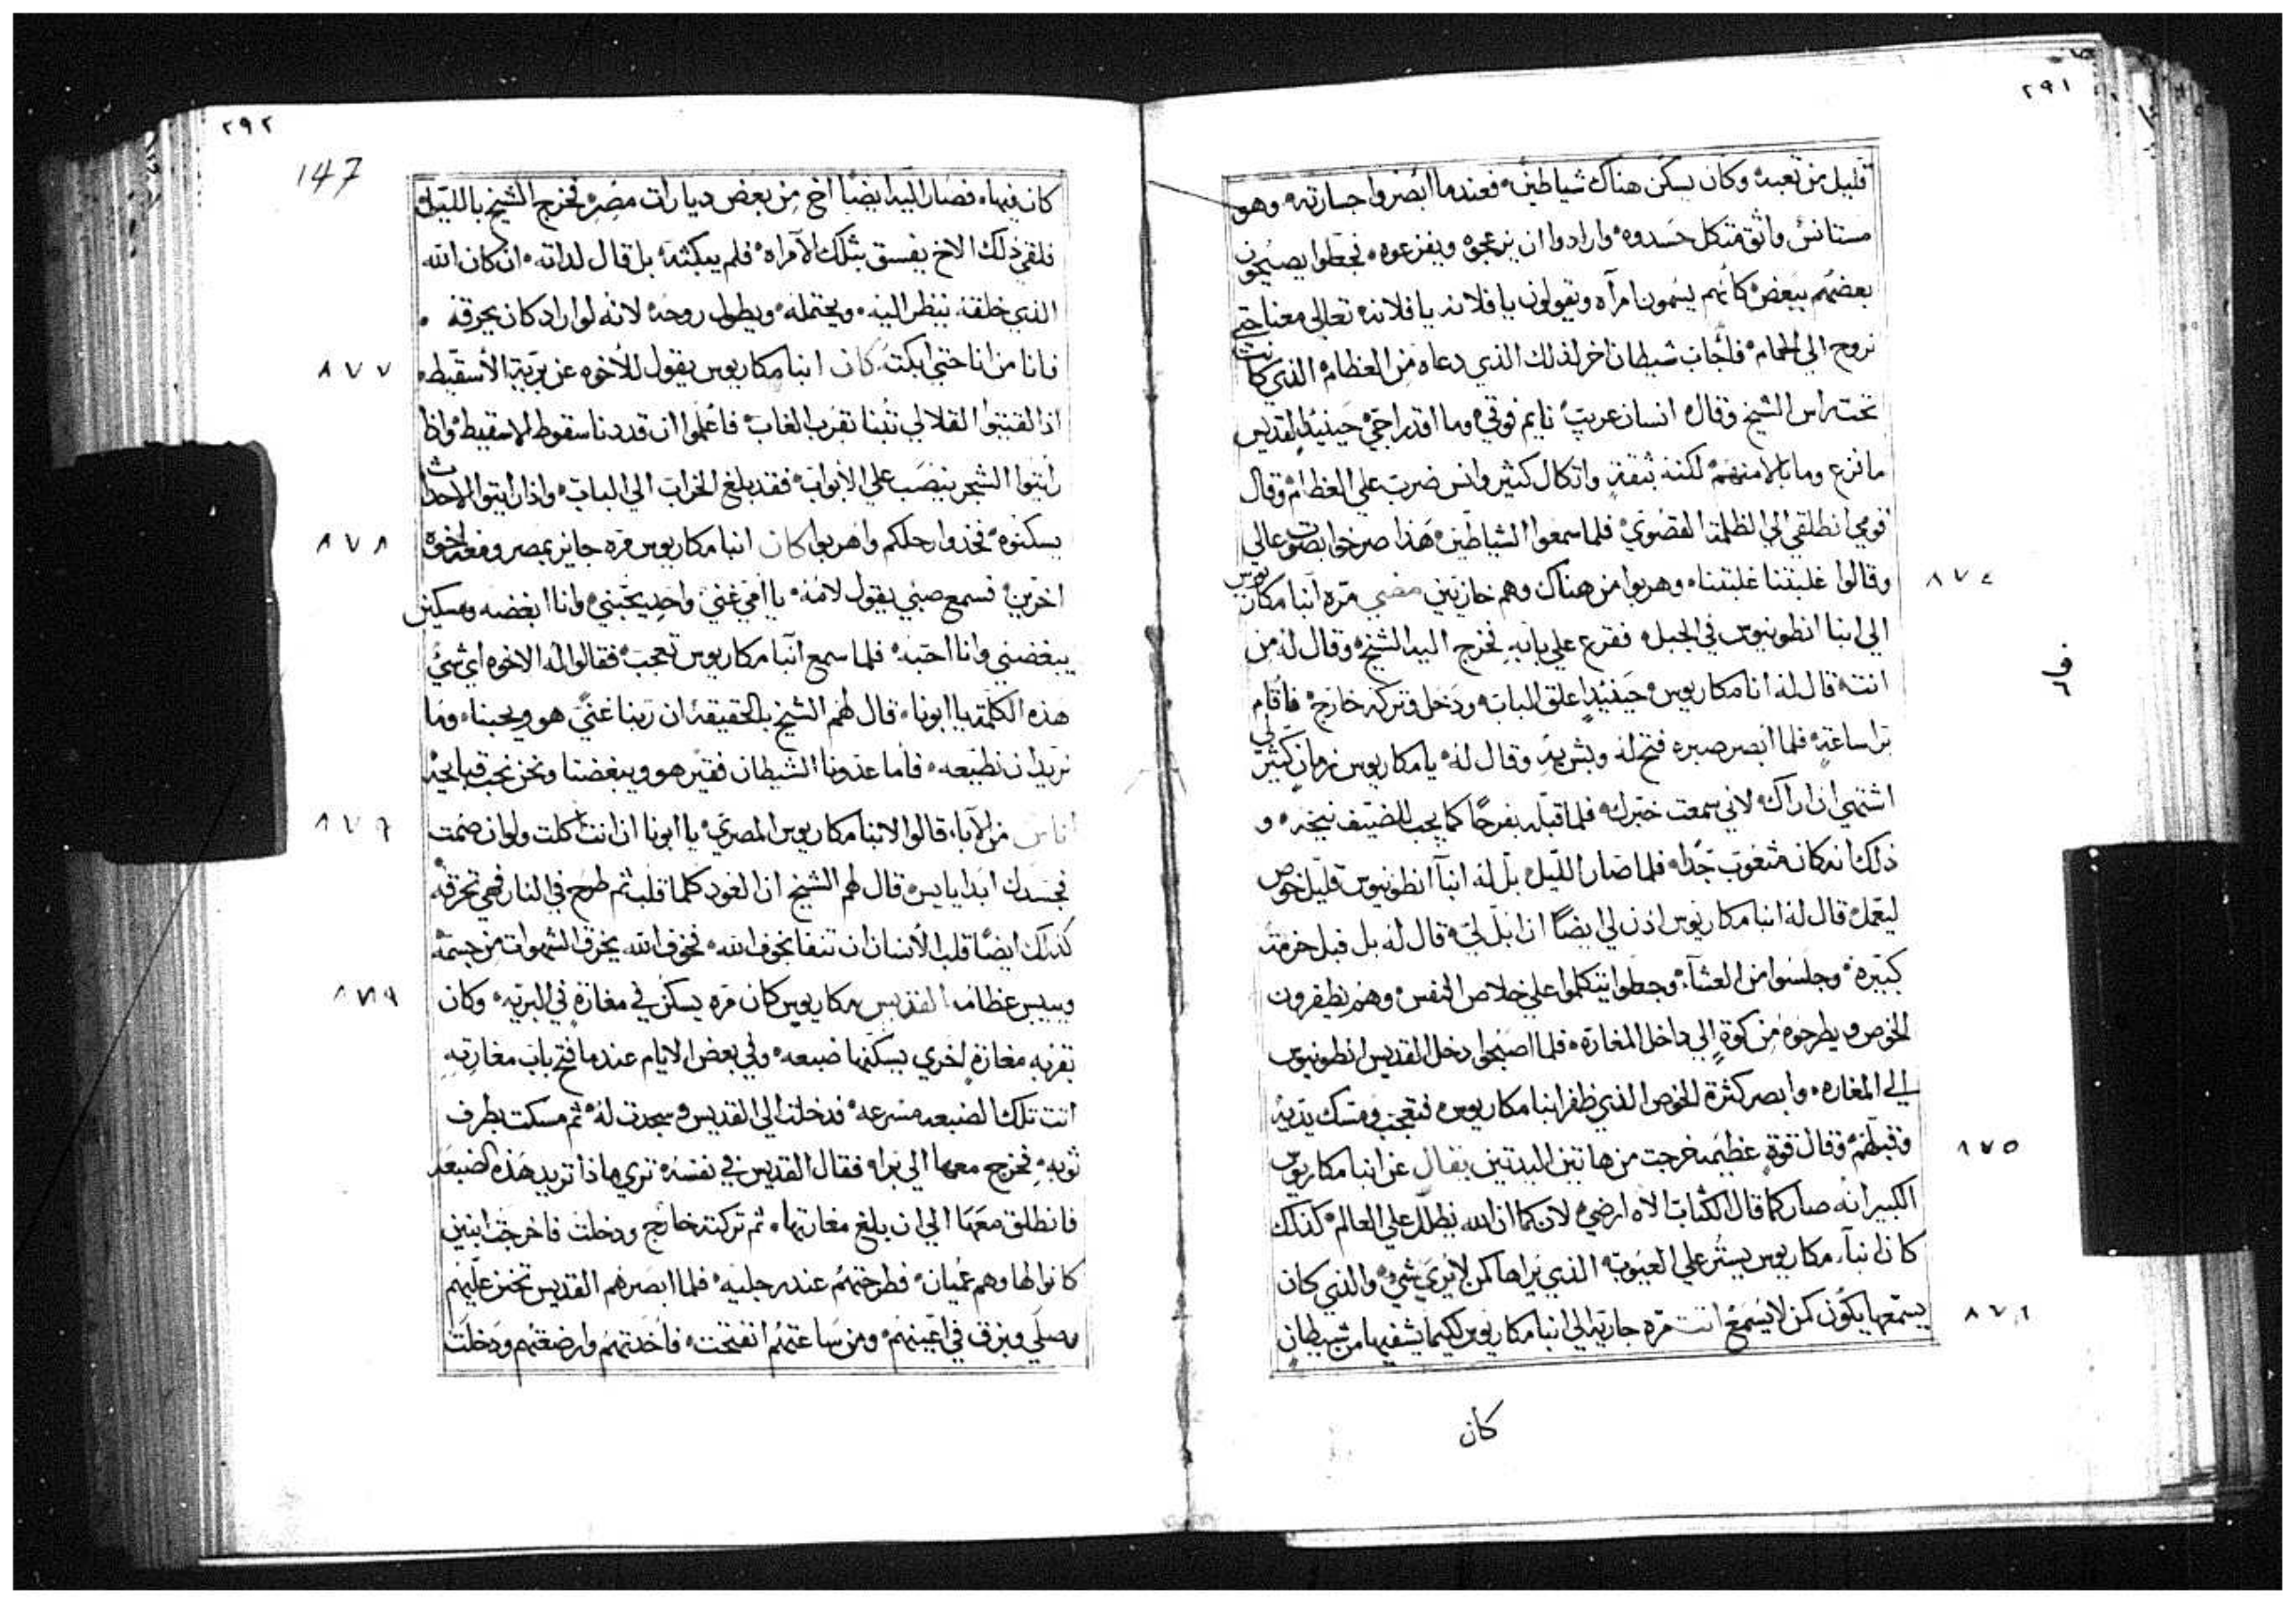 ٢٩١
قليل من تعبه وكان يسكن هناك شياطين فعندما ابصروا جسارته وهو
مستانس واثق متكل حسدوه وارادوا ان يزعجوه ويفزعوه فجعلوا يصيحون
بعضهم ببعض كانهم يسمون امرآه ويقولون يا فلانه يا فلانه تعالي معنا حتي
نروح الي الحمام فاجاب شيطان اخر لذلك الذي دعاه من العظام الذي كانت
تحت راس الشيخ وقال انسان غريب نايم فوقي وما اقدر اجي حينيذ القديس
ما فزع وما بلا منهم لكنه بثقة واتكال كثير وانس ضرب علي العظام وقال
قومي انطلقي الي الظلمة القصوي فلما سمعوا الشياطين هذا صرخوا بصوت عالي
وقالوا غلبتنا غلبتنا وهربوا من هناك وهم خازيين مضي مرة آنبا مكاريوس
٨٧٤
الي انبا انطونيوس في الجبل فقرع علي بابه فخرج اليه الشيخ وقال له من
انت قال له انا مكاريوس حينيذ اغلق الباب ودخل وتركه خارج فاقام
برا ساعة فلما ابصر صبره فتح له وبش به وقال له يا مكاريوس لي زمان كثير
اشتهي ان اراك لاني سمعت خبرك فلما قبله بفرح كما يجب الضيف نيحه و
ذلك انه كان متعوب جدا فلما صار الليل بل له انبآ انطونيوس قليل خوص
ليعمل قال له انبا مكاريوس اذن لي ايضا ان ابل لي قال له بل فبل خزمه
كبيره وجلسوا من العشآء وجعلوا يتكلموا علي خلاص النفس وهم يظفرون
الخوص ويطرحوه من كوة الي داخل المغاره فلما اصبحوا دخل القديس انطونيوس
الي المغاره وابصر كثرة الخوص الذي ظفر انبا مكاريوس فتعجب ومسك يديه
وقبلهم وقال قوة عظيمه خرجت من هاتين اليدتين يقال عن انبا مكاريوس
٨٧٥
الكبير انه صار كما قال الكتاب الاه ارضي لان كما ان الله يظلل علي العالم كذلك
كان انبآ مكاريوس يستر علي العيوب الذي يراها كمن لا يري شي والذي كان
يسمعها يكون كمن لا يسمع اتت مره جارية الي انبا مكاريوس لكيما يشفيها من شيطان
٨٧٦
كان
٢٩٢
147
كان فيها فصار اليه ايضا اخ من بعض ديارات مصر فخرج الشيخ بالليل
فلقي ذلك الاخ يفسق بتلك الآمراه فلم يبكته بل قال لذاته ان كان الله
الذي خلقه ينظر اليه ويحتمله ويطول روحه لانه لو اراد كان يحرقه
فانا من انا حتي ابكته كان انبا مكاريوس يقول للاخوه عن برية الأسقيط
٨٧٧
اذا لقيتوا القلالي تبنا تقرب الغاب فاعلموا ان قد دنا سقوط الاسقيط واذا
رايتوا الشجر ينصب علي الأبواب فقد بلغ الخراب الي الباب واذا رايتوا الاحداث
يسكنوه فخذوا رحلكم واهربوا كان انبا مكاريوس مره جايز بمصر ومعه اخوة
٨٧٨
اخرين فسمع صبي يقول لامه يا امي غني واحد يحبني وانا ابغضه ومسكين
يبغضني وانا احبه فلما سمع آنبا مكاريوس تعجب فقالوا له الاخوه اي شي
هذه الكلمة يا ابونا قال لهم الشيخ بالحقيقة ان ربنا غني هو ويحبنا وما
نريد ان نطيعه فاما عدونا الشيطان فقير هو ويبغضنا ونحن نحب قبايحه
اناس من الآباء قالوا لانبا مكاريوس المصري يا ابونا ان انت اكلت ولو ان صمت
٨٧٩
فجسدك ابدا يابس قال لهم الشيخ ان العود كلما قلب ثم طرح في النار فهي تحرقه
كذلك ايضا قلب الأنسان ان تنقا بخوف الله فخوف الله يحرق الشهوات من جسمه
وييبس عظامه القديس مكاريوس كان مره يسكن في مغارة في البريه وكان
بقربه مغارة اخري يسكنها ضبعه وفي بعض الايام عندما فتح باب مغارته
اتت تلك الضبعه مسرعه فدخلت الي القديس وسجدت له ثم مسكت بطرف
ثوبه فخرج معها الي برا فقال القديس في نفسه تري ماذا تريد هذه الضبعه
فانطلق معها الي ان بلغ مغارتها ثم تركته خارج ودخلت فاخرجت ابنين
كانوا لها وهم عميان فطرحتهم عند رجليه فلما ابصرهم القديس تحنن عليهم
وصلي وبزق في اعينهم ومن ساعتهم انفتحت فاخذتهم وارضعتهم ودخلت